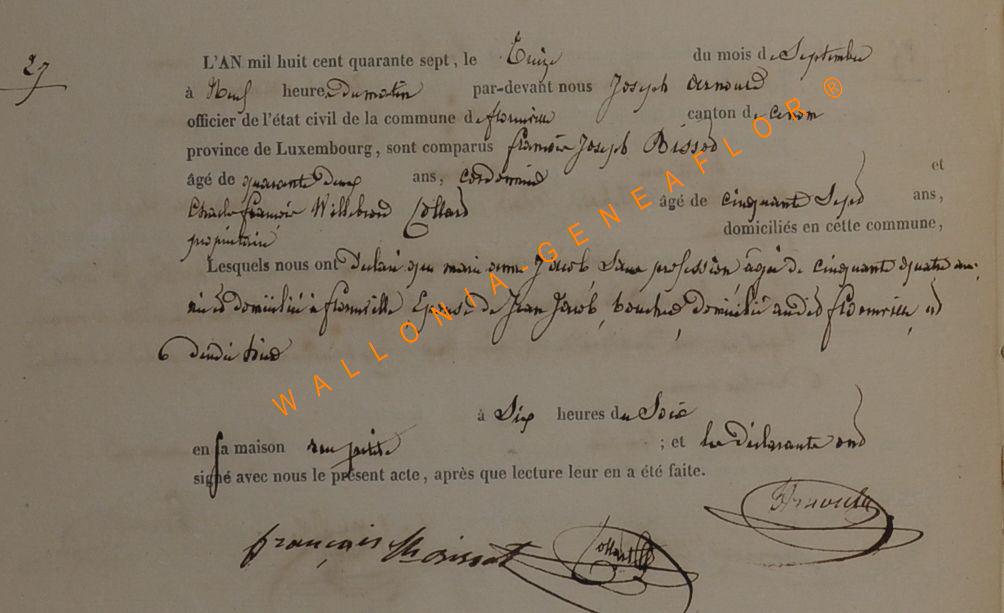 27
L'AN mil huit cent quarante sept, le treize du mois de Septembre
à Neuf heure du matin par-devant nous Joseph Arnould
officier de l'état civil de la commune de florenville canton de
province de Luxembourg, sont comparus françois Joseph
âgé de quarante deux ans, cordonnier et
Charle françois Willebrord Collard âgé de cinquante Sept ans,
propriétaire domiciliés en cette commune,
Lesquels nous ont Declaré que marie anne Jacob Sans profession, âgée de cinquante quatre ans
née et domiciliée à florenville Epouse de Jean Jacob, domicilié audit florenville, est
décédée
à Six heures du Soir
en sa maison rue petite ; et les déclarants ont
signé avec nous le présent acte, après que lecture leur en a été faite.
Arnould
françois Collard
WALLONIA-GENEAFLOR ®